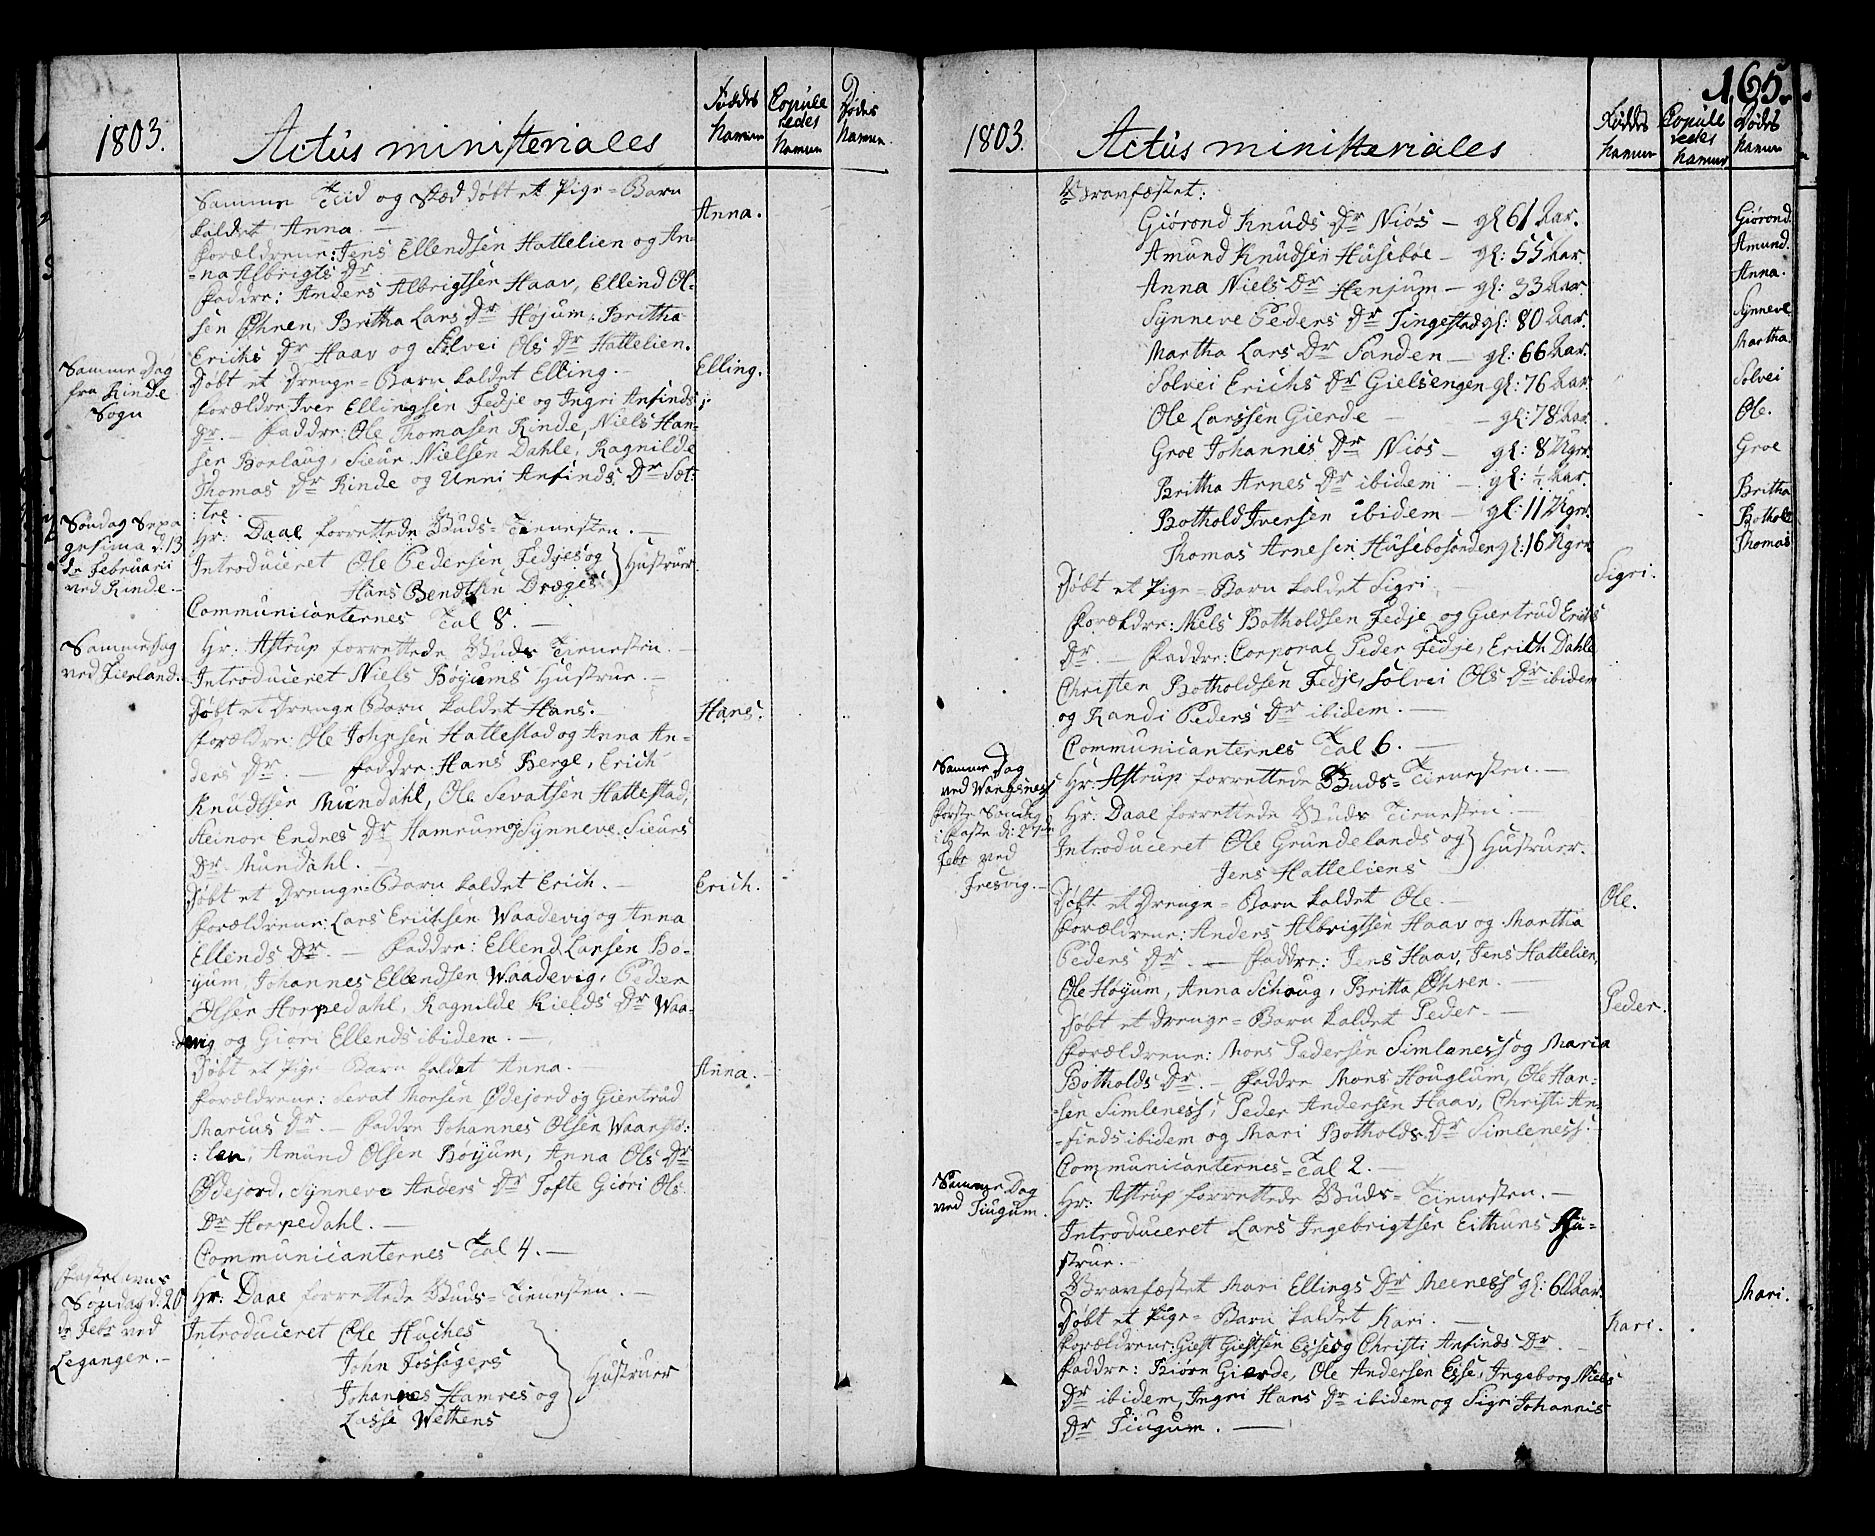 1803.
Actus ministeriales
Føddes Namun
Copule redes Namun
Dødes Namun
Samme Tiid og Stæd døbt et Pige-Barn
kaldet Anna. —
Anna.
Forældrene: Jens Ellendsen Hattelien og An-
-na Albrigts Dr.
Faddre: Anders Albrigtsen Haav, Ellend Ol-
sen Øhren, Britha Lars Dr Højum, Britha
Erichs Dr Haav og Solvei Ols Dr Hattelien.
Samme Dag
fra Rinde
Sogn
Døbt et Drenge-Barn kaldet Elling. —
Elling.
Forældre Iver Ellingsen Fedje og Ingri Anfinds
Dr. — Faddre: Ole Thomasen Rinde, Niels Han-
sen Borlaug, Sieur Nielsen Dahle, Ragnilde
Thomas Dr Rinde og Unni Anfinds Dr Sæt-
:tre. —
Søndag Sexa
gesima d: 13
de Februarii
ved Rinde. —
Hr: Daae forrettede Guds-Tienesten. —
Introduceret Ole Pedersen Fedjes og
Hans Bendtsen Dræges
Hustruer
Communicanternes Tal 8. —
Samme Dag
ved Fierland.
Hr. Astrup forrettede Guds Tienesten. —
Introduceret Niels Bøyums Hustrue. —
Døbt et Drenge Barn kaldet Hans. —
Hans.
Forældre: Ole Johnsen Hattestad og Anna An-
ders Dr. — Faddre: Hans Berge, Erich
Knudtsen Mundahl, Ole Sevatsen Hattestad,
Steinor Endres Dr Hamrum og Synneve Sieurs
Dr. Mundahl.
Døbt et Drenge-Barn kaldet Erich. —
Erich.
Forældrene: Lars Erichsen Waadevig og Anna
Ellends Dr. — Faddre: Ellend Larsen Bo-
yum, Johannes Ellendsen Waadevig, Peder
Olsen Horpedahl, Ragnilde Kields Dr Waa-
devig og Giøri Ellends ibidem. —
Døbt et Pige-Barn kaldet Anna. —
Anna.
Forældrene: Sevat Thorsen Ødejord og Giertrud
Marcus Dr. — Faddre Johannes Olsen Waarstø:
:len, Amund Olsen Bøyum, Anna Ols Dr
Ødejord, Synneve Anders Dr Tofte Giøri Ols
Dr Horpedahl. —
Communicanternes Tal 4. —
Fastelavns
Søndag d. 20
de Febr ved
Leganger. —
Hr: Daae forrettede Guds-Tienesten. —
Introduceret Ole Huches
John Fossagers
Johannes Hamres og
Lasse Wettens
Hustruer
165.
1803.
Actus ministeriales
Føddes Namun
Copule redes Namun
Dødes Namun
Gravfæstet:
Giørond Knuds Dr Niøs — gl: 61 Aar.
Giørond.
Amund Knudsen Husebøe — gl: 55 Aar.
Amund.
Anna Niels Dr Henjum — gl: 33 Aar.
Anna.
Synneve Peders Dr Tingestad gl: 80 Aar.
Synneve
Martha Lars Dr Sanden — gl: 66 Aar.
Martha.
Solvei Erichs Dr Gielsengen gl: 76 Aar
Solvei
Ole Larssen Gierde — gl: 78 Aar.
Ole.
Groe Johannes Dr Niøs — gl: 8 Ugrr.
Groe
Britha Arnes Dr ibidem — gl: ½ Aar.
Britha
Bothold Iversen ibidem — gl: 11 Ugrr.
Bothold
Thomas Arnesen Husebøsonden gl: 16 Ugrr
Thomas
Døbt et Pige-Barn kaldet Sigri. —
Sigri.
Forældre: Niels Botholdsen Fedje og Giertrud Erichs
Dr. — Faddre: Corporal Peder Fedje, Erich Dahle
Christen Botholdsen Fedje, Solvei Ols Dr ibidem
og Randi Peders Dr ibidem. —
Communicanternes Tal 6. —
Samme Dag
ved Wangsness
Hr: Astrup forrettede Guds-Tienesten. —
Første Søndag
i Faste d: 27de
Febr ved
Fresvig. —
Hr: Daae forrettede Guds Tienesten. —
Introduceret Ole Grundelands og
Jens Hatteliens
Hustruer.
Døbt et Drenge-Barn kaldet Ole. —
Ole.
Forældrene: Anders Albrigtsen Haav og Martha
Peders Dr. — Faddre: Jens Haav, Jens Hattelien,
Ole Høyum, Anna Schoug, Britta Øhren. —
Døbt et Drenge-Barn kaldet Peder. —
Peder.
Forældrene: Mons Pedersen Simlaness og Maria
Botholds Dr. — Faddre Mons Houglum, Ole Han-
-sen Simleness, Peder Andersen Haav, Christi An-
-finds ibidem og Mari Botholds Dr Simleness.
Communicanternes-Tal 2. —
Samme Dag
ved Tiugum.
Hr: Astrup forrettede Guds-Tienesten. —
Introduceret Lars Ingebrigtsen Eithuns Hu-
strue. —
Gravfæstet Mari Ellings Dr Meeness gl: 60 Aar.
Mari.
Døbt et Pige-Barn kaldet Kari. —
Kari.
Forældrene: Giest Giestsen Esse og Christi Anfinds Dr. —
Faddre: Biørn Gierde, Ole Andersen Esse, Ingeborg Niels
Dr ibidem, Ingri Hans Dr ibidem og Sigri Johannis
Dr Tiugum. —